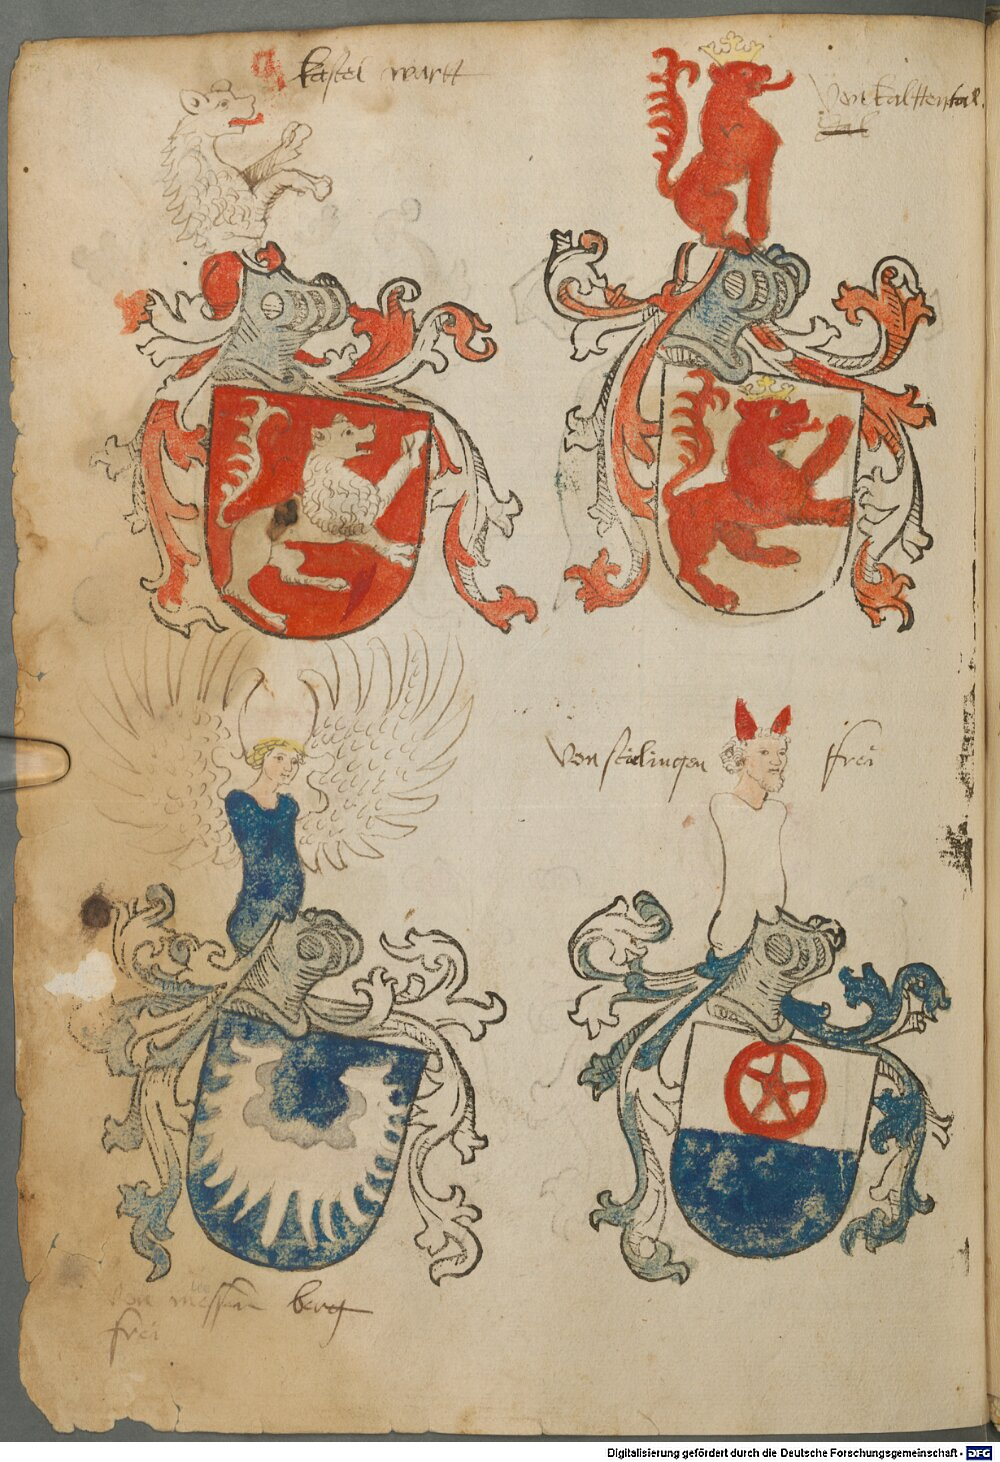 kastel wartt
Von kalttental.
tal
Von stœlingen frei
von messen berg
frei
Digitalisierung gefördert durch die Deutsche Forschungsgemeinschaft - DFG